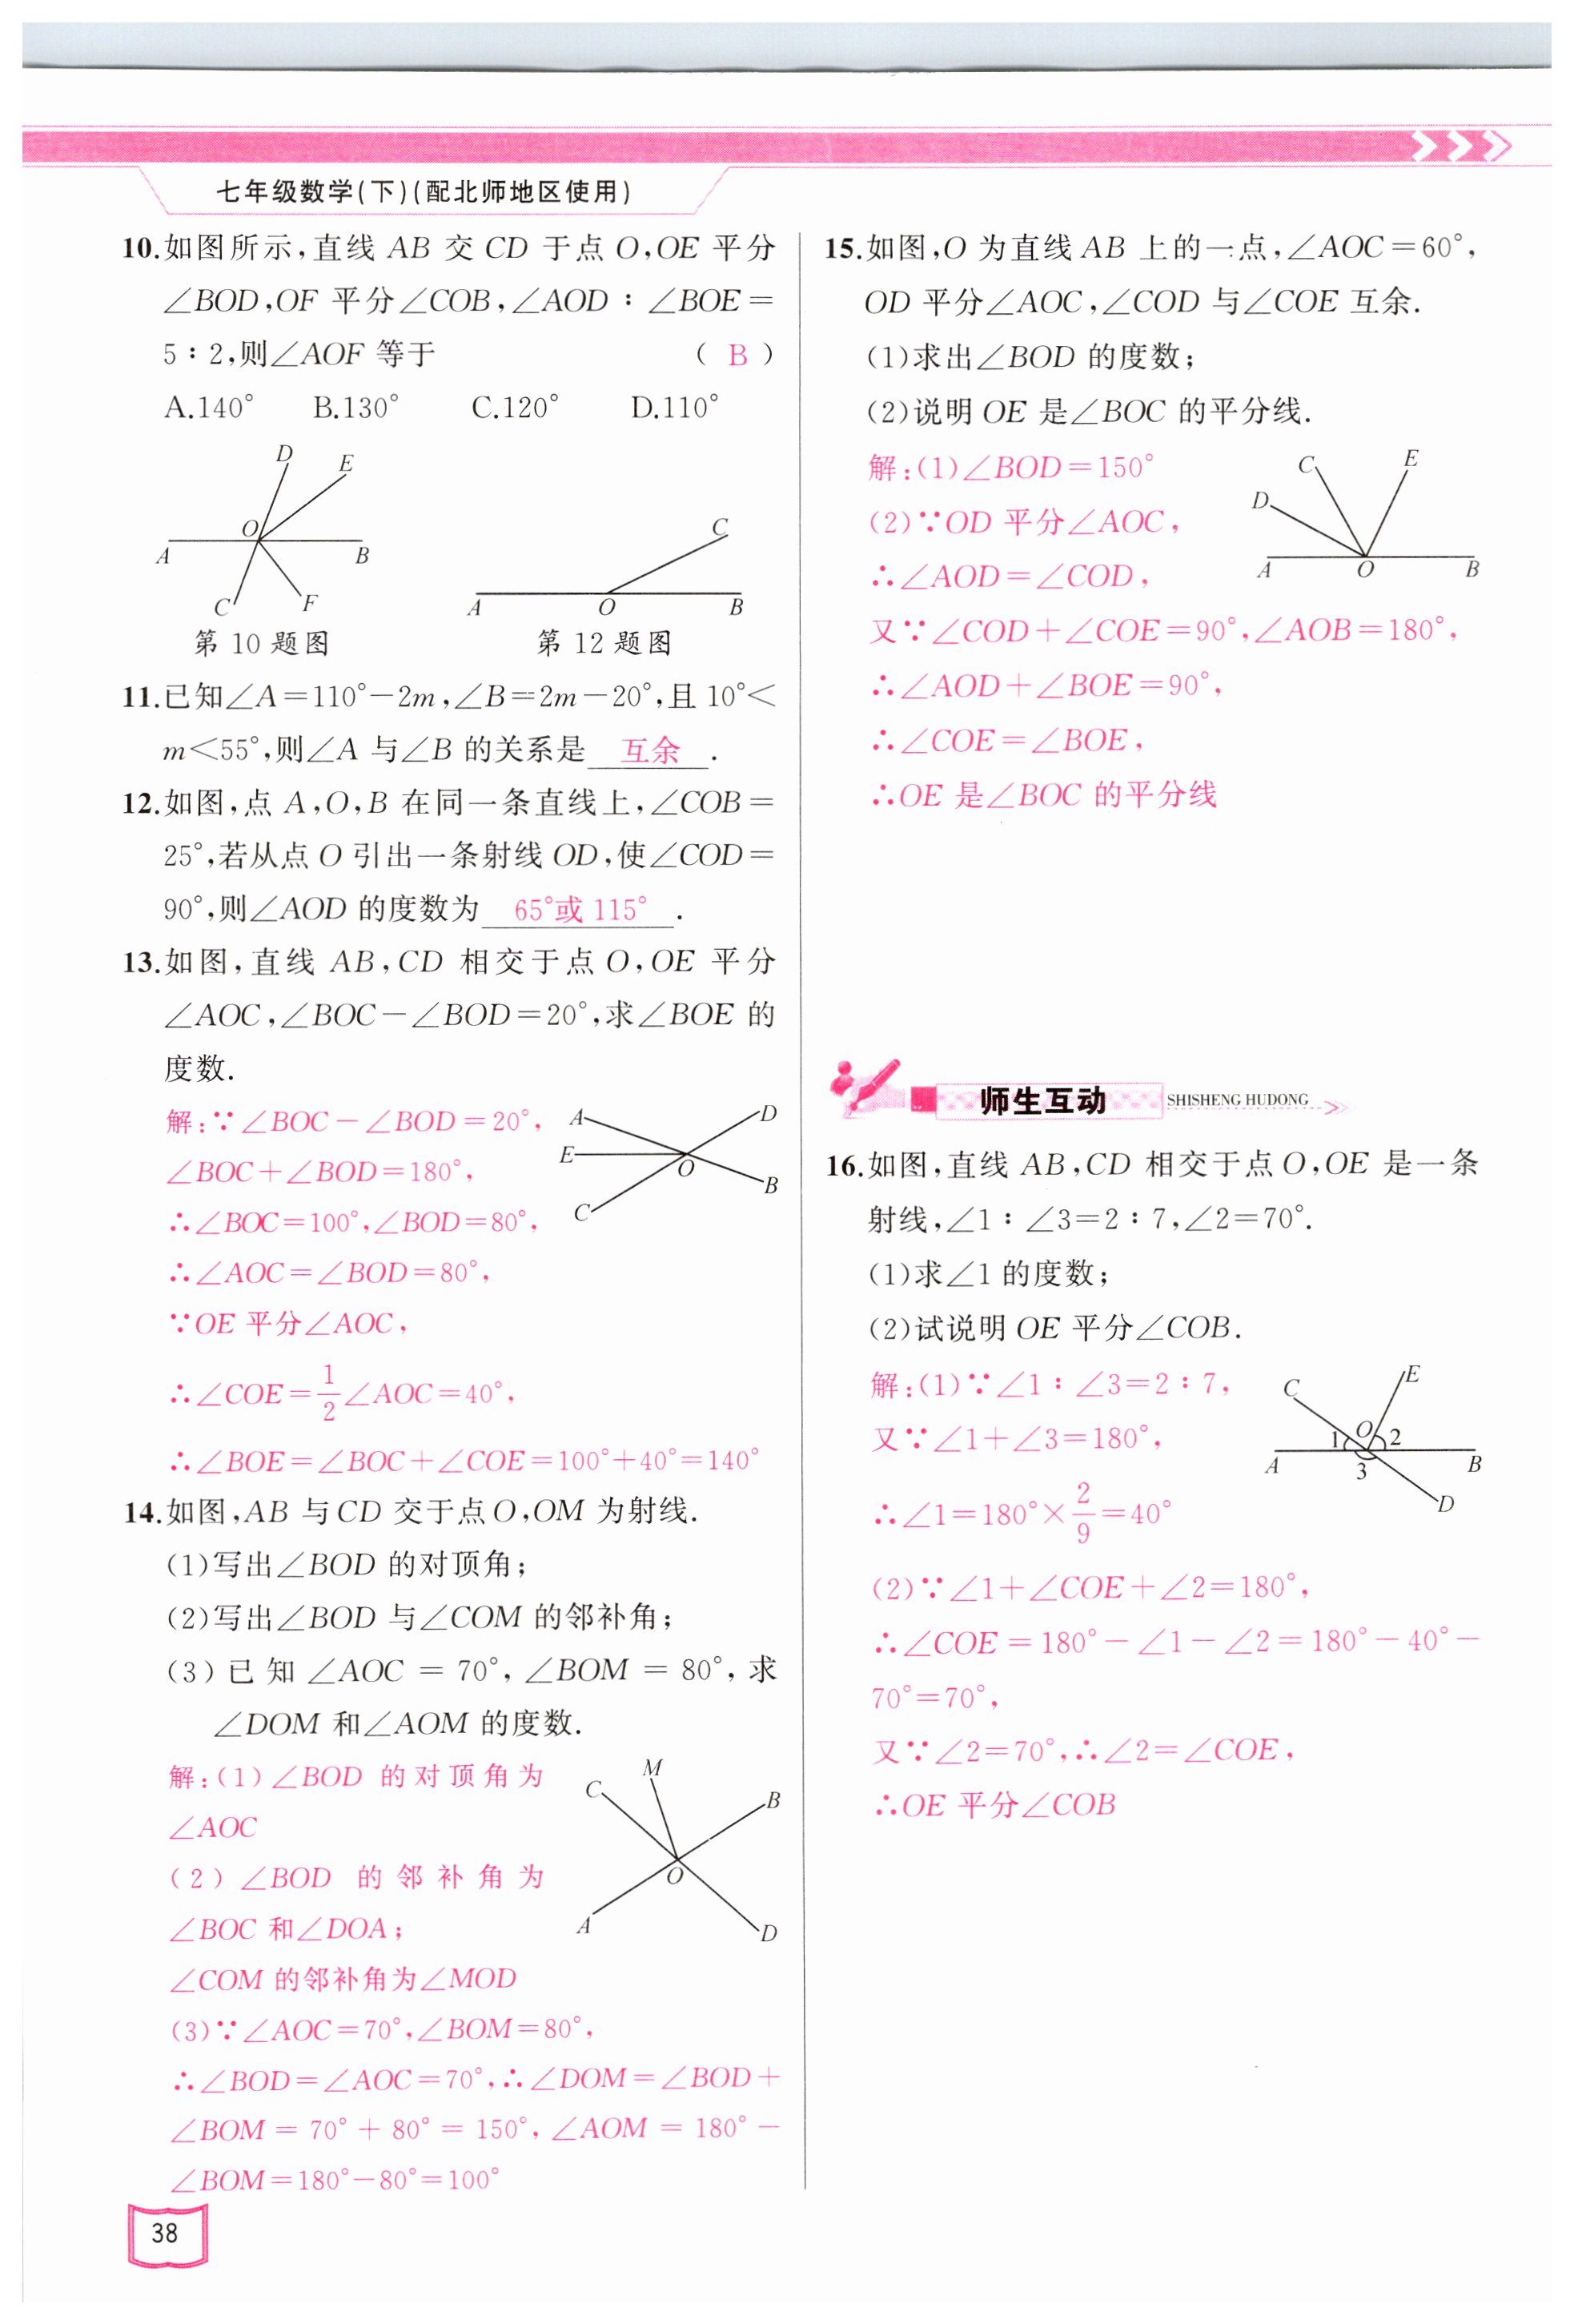 七年级数学(下)(配北师地区使用)
10.如图所示,直线 AB 交 CD 于点 O,OE 平分
∠BOD,OF 平分∠COB,∠AOD∶∠BOE=
5∶2,则∠AOF 等于 ( B )
A.140° B.130° C.120° D.110°
D
E
O
A
B
C
F
第 10 题图
C
A
O
B
第 12 题图
11.已知∠A=110°−2m,∠B=2m−20°,且 10°<
m<55°,则∠A 与∠B 的关系是 互余 .
12.如图,点 A,O,B 在同一条直线上,∠COB=
25°,若从点 O 引出一条射线 OD,使∠COD=
90°,则∠AOD 的度数为 65°或 115° .
13.如图,直线 AB,CD 相交于点 O,OE 平分
∠AOC,∠BOC−∠BOD=20°,求∠BOE 的
度数.
解:∵∠BOC−∠BOD=20°,
∠BOC+∠BOD=180°,
∴∠BOC=100°,∠BOD=80°,
∴∠AOC=∠BOD=80°,
∵OE 平分∠AOC,
∴∠COE=1/2∠AOC=40°,
∴∠BOE=∠BOC+∠COE=100°+40°=140°
A
D
E
O
B
C
14.如图,AB 与 CD 交于点 O,OM 为射线.
(1)写出∠BOD 的对顶角;
(2)写出∠BOD 与∠COM 的邻补角;
(3)已知∠AOC=70°,∠BOM=80°,求
∠DOM 和∠AOM 的度数.
解:(1)∠BOD 的对顶角为
∠AOC
(2)∠BOD 的邻补角为
∠BOC 和∠DOA;
∠COM 的邻补角为∠MOD
(3)∵∠AOC=70°,∠BOM=80°,
∴∠BOD=∠AOC=70°,∴∠DOM=∠BOD+
∠BOM=70°+80°=150°,∠AOM=180°−
∠BOM=180°−80°=100°
M
C
B
O
A
D
38
15.如图,O 为直线 AB 上的一点,∠AOC=60°,
OD 平分∠AOC,∠COD 与∠COE 互余.
(1)求出∠BOD 的度数;
(2)说明 OE 是∠BOC 的平分线.
解:(1)∠BOD=150°
(2)∵OD 平分∠AOC,
∴∠AOD=∠COD,
又∵∠COD+∠COE=90°,∠AOB=180°,
∴∠AOD+∠BOE=90°,
∴∠COE=∠BOE,
∴OE 是∠BOC 的平分线
C
E
D
A
O
B
师生互动 SHISHENG HUDONG
16.如图,直线 AB,CD 相交于点 O,OE 是一条
射线,∠1∶∠3=2∶7,∠2=70°.
(1)求∠1 的度数;
(2)试说明 OE 平分∠COB.
解:(1)∵∠1∶∠3=2∶7,
又∵∠1+∠3=180°,
∴∠1=180°×2/9=40°
(2)∵∠1+∠COE+∠2=180°,
∴∠COE=180°−∠1−∠2=180°−40°−
70°=70°,
又∵∠2=70°,∴∠2=∠COE,
∴OE 平分∠COB
E
C
O
1
2
A
3
B
D